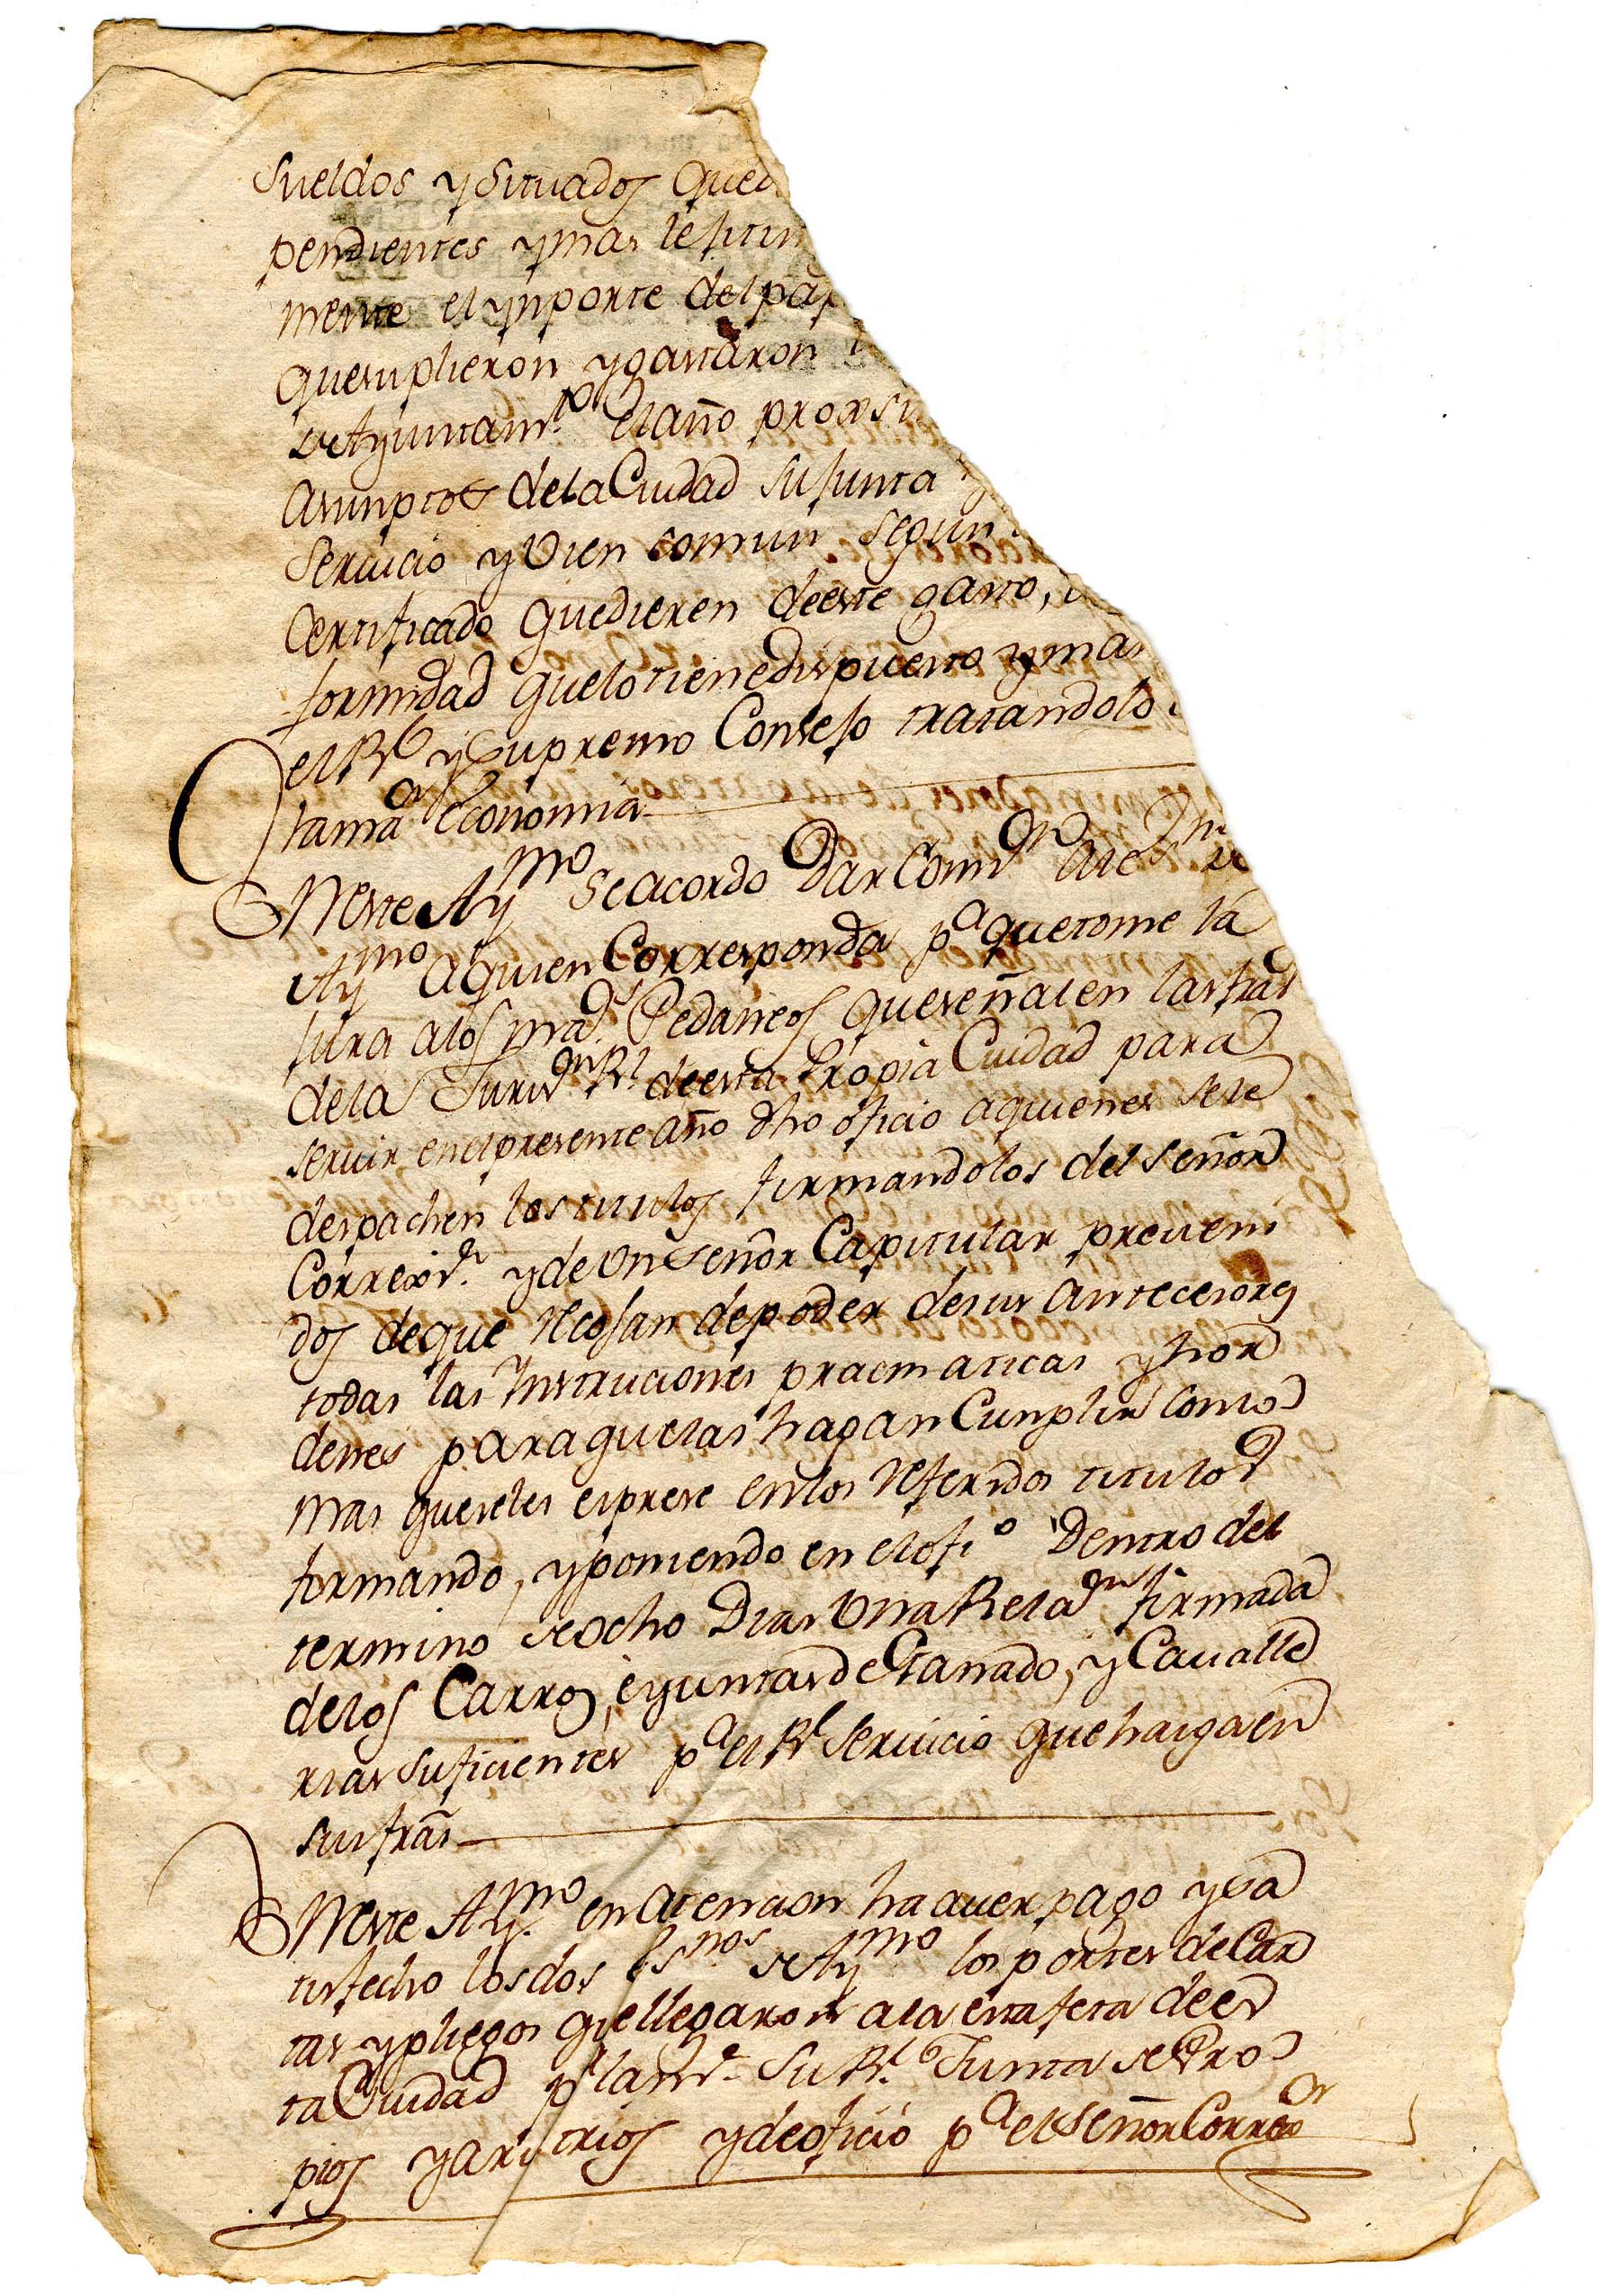 Sueldos y Situados qued
pendientes y mas lejitim
mente el ynporte del pap
que suplieron y gastaron
de Ayuntam.to el año proxsi
asumptos de la Ciudad su Junta
Servicio y vien comun segun
Certificado que dieren de este gasto,
formidad que lo tiene dispuesto y ma
el Rl y Supremo Consejo tratandolo
ta maor economia
En este Aymo se acordo Dar Comon al e
Aymo a quien Corresponda pa que tome la
jura a los mads Pedaneos que señalen las fras
de la Jurison Rl de esta Propia Ciudad para
servir en el presente año dho oficio a quienes se le
despachen los titulos firmandolos del señor
Correxor y de un señor Capitular preveni
dos de que recojan de poder de sus antecesores
todas las Ynstruciones pracmaticas y hor
denes para que las hagan Cunplir como
mas que se les esprese en los referidos titulos
formando, y poniendo en el ofio Dentro del
termino de ocho Dias Una Relaon firmada
de los Carros, e yuntas de Ganado, y Cavalle
rias suficientes pa el Rl servicio que haiga en
sus fras
En este Aymo en atencion ha aver pago y sa
tisfecho los dos Esnos de Aymo los portes de Car
tas y pliegos que llegaron a la estafeta de es
ta Ciudad pa la mis.a Su Rl Junta de Pro
pios y arvitrios y de oficio pa el señor Correor